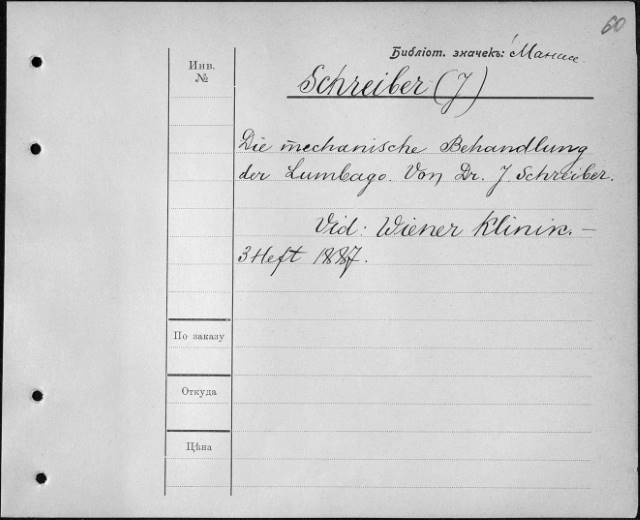 60
Библіот. значекъ:
Инв.
№
Schreiber (J)
Die mechanische Behandlung
der Lumbago. Von Dr. J. Schreiber.
Vid: Wiener Klinik. –
3 Heft 1887.
По заказу
Откуда
Цѣна